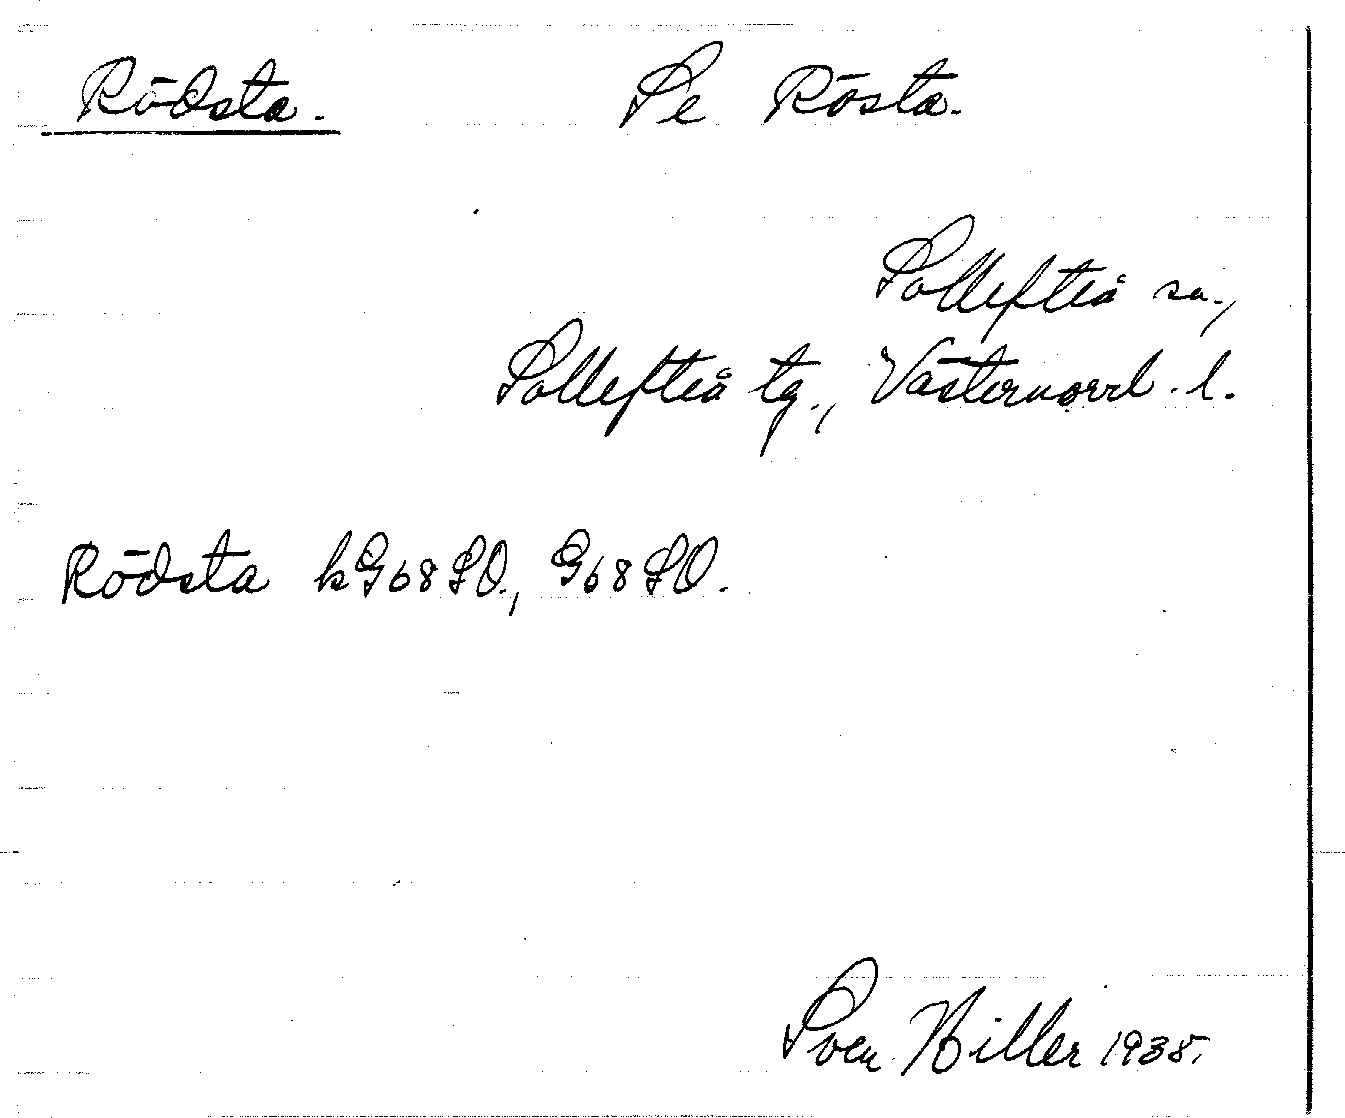 Rödsta. Se Rösta.
Sollefteå sn.,
Sollefteå tg., Västernorrl. l.
Rödsta kG68SO., G68SO.
Sven Hiller 1935.